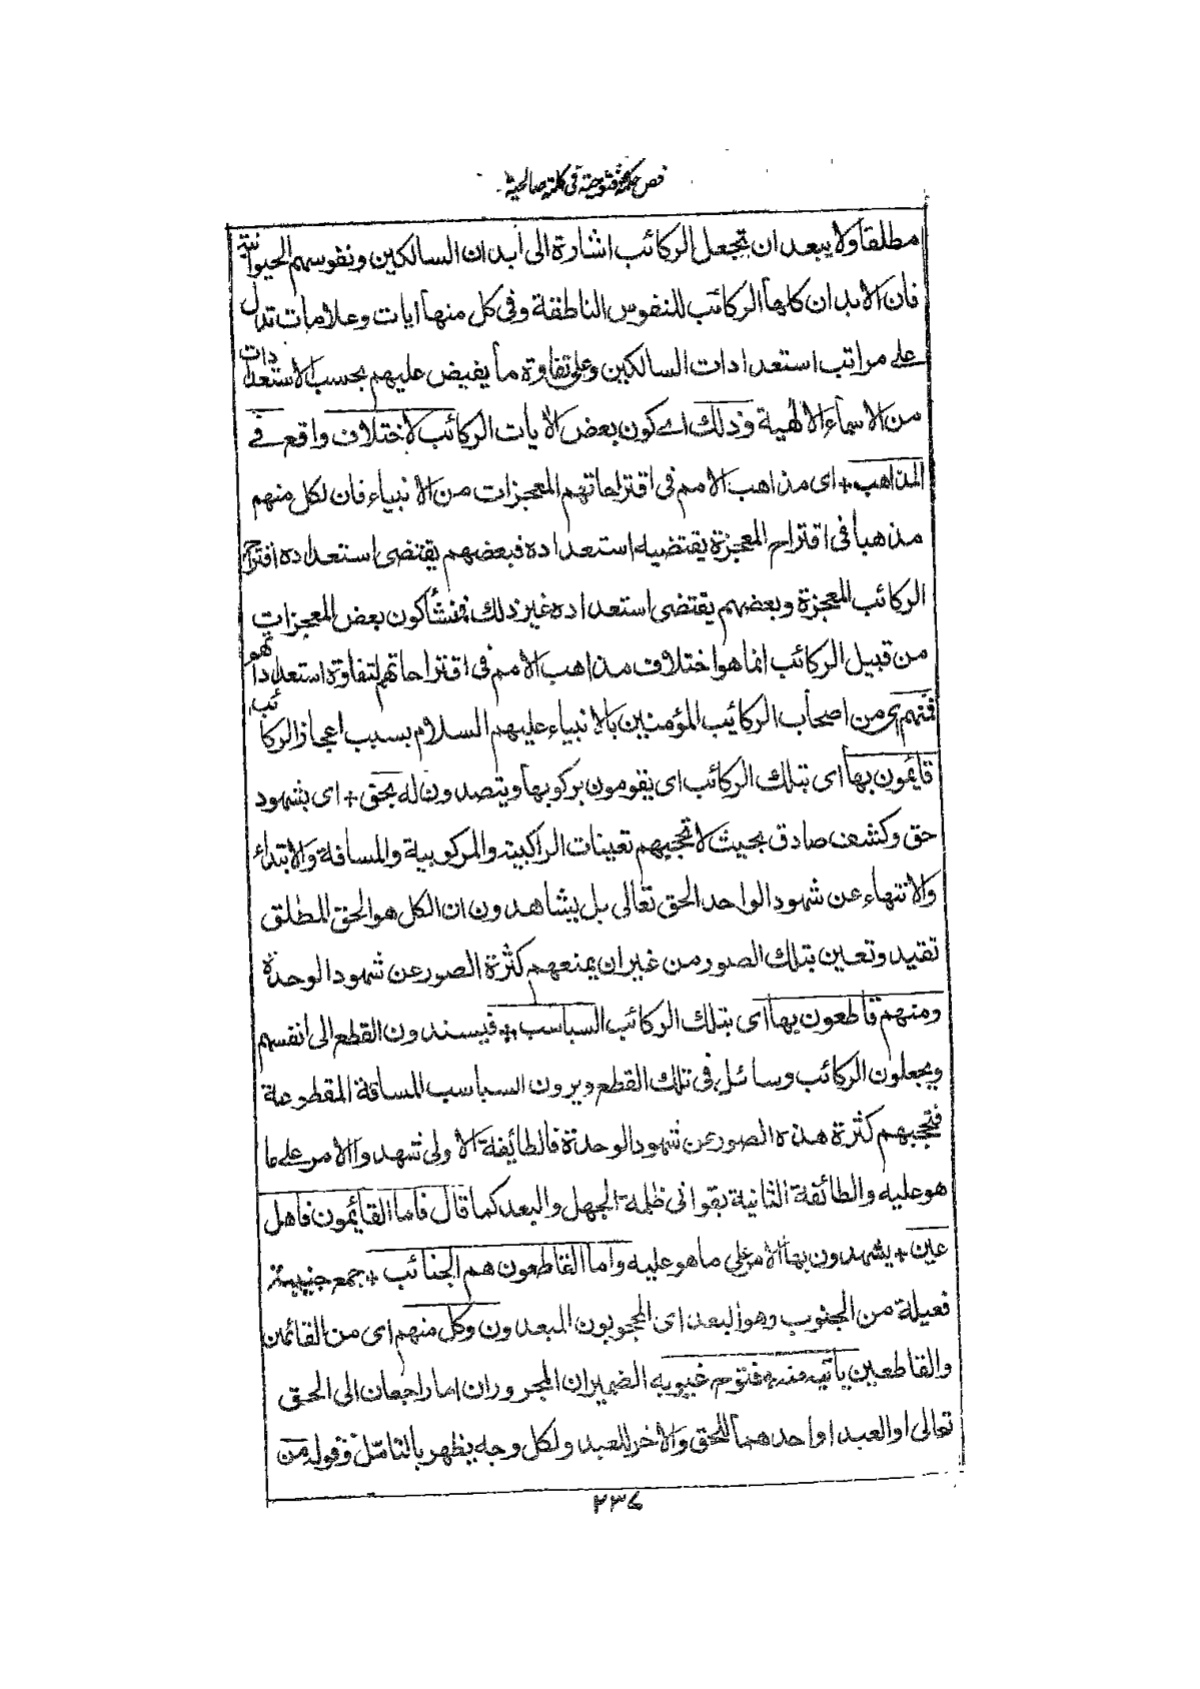 فص حكمة فتوحية فى كلمة صالحية
مطلقا ولا يبعد ان تجعل الركائب اشارة الى أبدان السالكين ونفوسهم الحيوانية
فان الابدان كلها الركائب للنفوس الناطقة وفى كل منها ايات وعلامات تدل
على مراتب استعدادات السالكين وعلى تفاوة ما يفيض عليهم بحسب الاستعدادات
من الاسماء الالهية وذلك اے كون بعض الأيات الركائب لاختلاف واقع فے
المذاهب + اى مذاهب الامم فى اقتراحاتهم المعجزات من الانبياء فان لكل منهم
مذهبا فى اقتراح المعجزة يقتضيه استعداده فبعضهم يقتضى استعداده اقتراح
الركائب المعجزة وبعضهم يقتضى استعداده غير ذلك فمنشأ كون بعض المعجزات
من قبيل الركائب انما هو اختلاف مذاهب الامم فى اقتراحاتهم لتفاوة استعداداتهم
فمنهم اى من اصحاب الركائيب المؤمنين بالانبياء عليهم السلام بسبب اعجاز الركائب
قائمون بها اى بتلك الركائب اى يقومون بركوبها ويتصدون له بحق + اى بشهود
حق وكشف صادق بحيث لا تحجبهم تعينات الراكبية والمركوبية والمسافة والابتداء
والانتهاء عن شهود الواحد الحق تعالى بل يشاهدون ان الكل هو الحق المطلق
تقيد وتعين بتلك الصور من غير ان يمنعهم كثرة الصور عن شهود الوحدة
ومنهم قاطعون بها اى بتلك الركائب السباسب + فيسندون القطع الى انفسهم
ويجعلون الركائب وسائل فى تلك القطع ويرون السباسب المسافة المقطوعة
فتحجبهم كثرة هذه الصور عن شهود الوحدة فالطائفة الاولى شهدوا الامر على ما
هو عليه والطائفة الثانية بقوا فى ظلمة الجهل والبعد كما قال فاما القائمون فاهل
عين + يشهدون بها الامر على ما هو عليه واما القاطعون هم الجنائب + جمع جنيبة
فعيلة من الجنوب وهو البعد اى المحجوبون المبعدون وكل منهم اى من القائمين
والقاطعين يأتيه منه + فتوح غيوبه الضميران المجروران اما راجعان الى الحق
تعالى او العبد او احدهما للحق والاخر للعبد ولكل وجه يظهر بالتامل وقوله من
٢٣٤